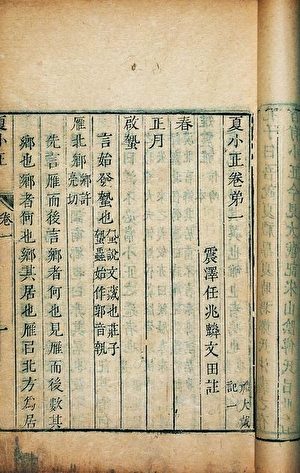 夏小正卷弟一
震澤任兆麟文田註
春
正月
啟蟄
言始發蟄也
蟄說文藏也莊子
蟄蟲始作郭音執
雁北鄉
先言雁而後言鄉者何也見雁而後數其
鄉也鄉者何也鄉其居也雁㠯北方爲居
夏小正
卷一